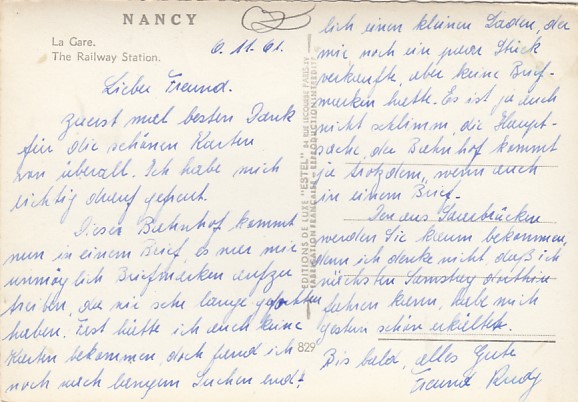 NANCY
La Gare.
The Railway Station.
6.11.61.
Lieber Freund.
zuerst mal besten Dank
für die schönen Karten
von überall. Ich habe mich
richtig drauf gefreut.
Dieser Bahnhof kommt
nun in einem Brief, es war mir
unmöglich Briefmarken aufzu
treiben, da wir sehr lange gefochten
haben. Fast hätte ich auch keine
Karten bekommen, doch fand ich
noch nach langem Suchen end-
EDITIONS DE LUXE "ESTEL" 84 RUE LECOURBE PARIS-XV
FABRICATION FRANÇAISE - REPRODUCTION INTERDITE
829
lich einen kleinen Laden, der
mir noch ein paar Stück
verkaufte, aber keine Brief-
marken hatte. Es ist ja auch
nicht schlimm, die Haupt-
sache, der Bahnhof kommt
ja trotzdem, wenn auch
in einem Brief.
Den aus Saarbrücken
werden Sie kaum bekommen,
denn ich denke nicht daß ich
nächsten Samstag dorthin
fahren kann, habe mich
gestern schön erkältet.
Bis bald, alles Gute
Freund Rudy